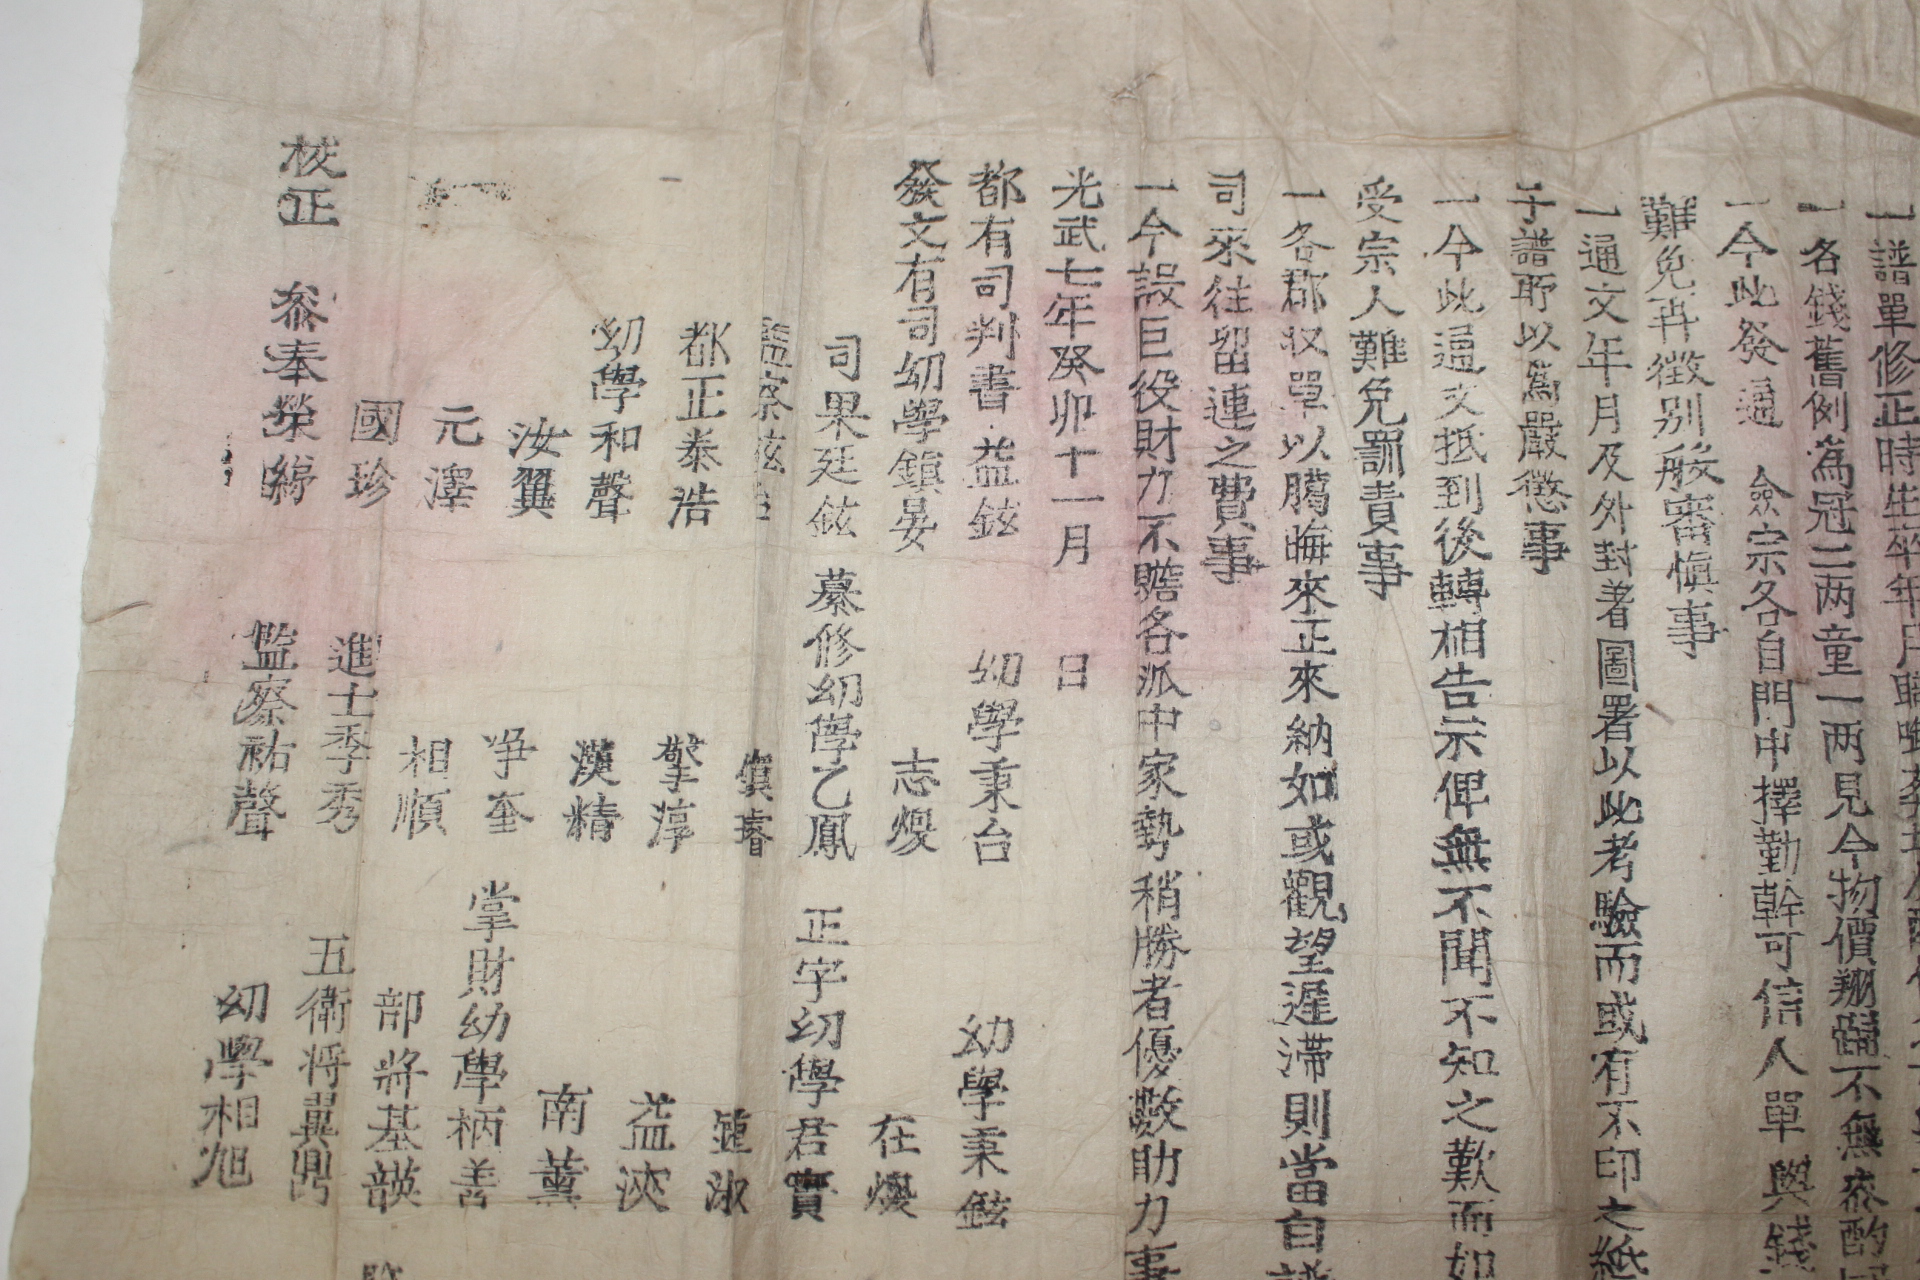 一譜單修正時生卒年月職
一各錢舊例爲冠二两童一两見今物價翔踊不無叅酌
一今此發通 僉宗各自門中擇勤幹可信人單與錢
難免再徵别般審愼事
一通文年月及外封着圖署以此考驗而或有不印之紙
于譜所以爲嚴懲事
一今此通文抵到後轉相告示俾無不聞不知之歎而如
受宗人難免罰責事
一各郡収單以臘晦來正來納如或觀望遲滯則當自譜
司來往留連之費事
一今設巨役財力不贍各派中家勢稍勝者優數助力事
光武七年癸卯十一月 日
都有司判書 益鉉 幼學秉台 幼學秉鉉
發文有司幼學鎭晏 志煥 在煥
司果廷鉉 纂修幼學乙鳳 正字幼學君實
監察 鎭璿 鍾淑
都正泰浩 擎淳 益浹
幼學和聲 漢精 南薰
汝翼 奎 掌財幼學柄善
元澤 相順 部將基韺
國珍 進士季秀 五衛将翼
校正 叅奉榮綈 監察祐聲 幼學相旭